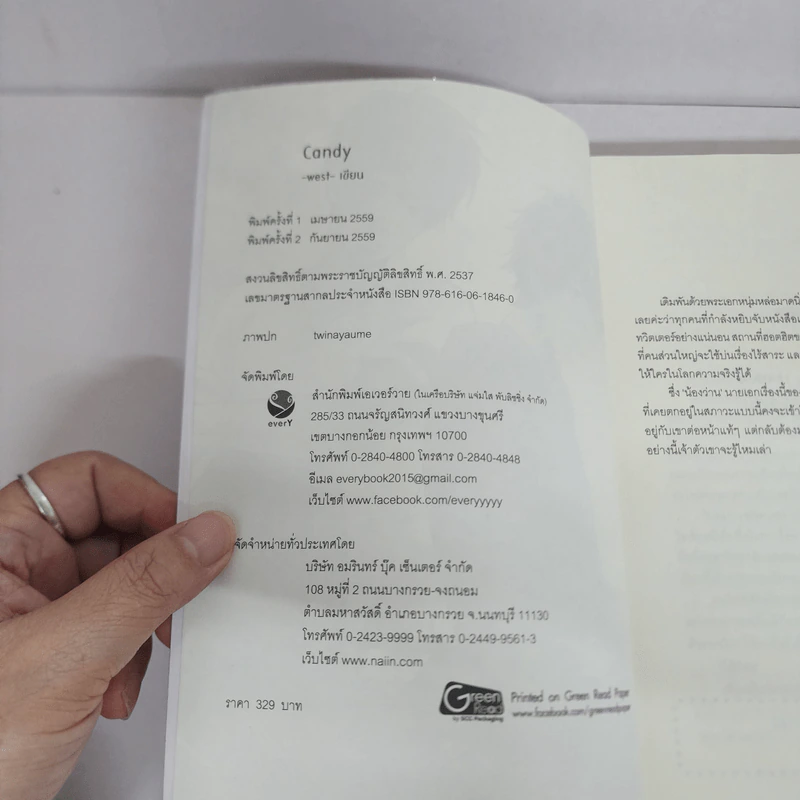 Candy
-west- เขียน
พิมพ์ครั้งที่ 1 เมษายน 2559
พิมพ์ครั้งที่ 2 กันยายน 2559
สงวนลิขสิทธิ์ตามพระราชบัญญัติลิขสิทธิ์ พ.ศ. 2537
เลขมาตรฐานสากลประจำหนังสือ ISBN 978-616-06-1846-0
ภาพปก twinayaume
จัดพิมพ์โดย
everY
สำนักพิมพ์เอเวอร์วาย (ในเครือบริษัท แจ่มใส พับลิชชิ่ง จำกัด)
285/33 ถนนจรัญสนิทวงศ์ แขวงบางขุนศรี
เขตบางกอกน้อย กรุงเทพฯ 10700
โทรศัพท์ 0-2840-4800 โทรสาร 0-2840-4848
อีเมล everybook2015@gmail.com
เว็บไซต์ www.facebook.com/everyyyyy
จัดจำหน่ายทั่วประเทศโดย
บริษัท อมรินทร์ บุ๊ค เซ็นเตอร์ จำกัด
108 หมู่ที่ 2 ถนนบางกรวย-จงถนอม
ตำบลมหาสวัสดิ์ อำเภอบางกรวย จ.นนทบุรี 11130
โทรศัพท์ 0-2423-9999 โทรสาร 0-2449-9561-3
เว็บไซต์ www.naiin.com
ราคา 329 บาท
Green Read
by SCG Packaging
Printed on Green Read Paper
www.facebook.com/greenreadpaper
เดิมพันด้วยพระเอกหนุ่มหล่อมาดนิ่
เลยค่ะว่าทุกคนที่กำลังหยิบจับหนังสือเ
ทวิตเตอร์อย่างแน่นอน สถานที่ฮอตฮิตข
ที่คนส่วนใหญ่จะใช้บ่นเรื่องไร้สาระ และ
ให้ใครในโลกความจริงรู้ได้
ซึ่ง 'น้องว่าน' นายเอกเรื่องนี้ของ
ที่เคยตกอยู่ในสภาวะแบบนี้คงจะเข้าใ
อยู่กับเขาต่อหน้าแท้ๆ แต่กลับต้องม
อย่างนี้เจ้าตัวเขาจะรู้ไหมเล่า